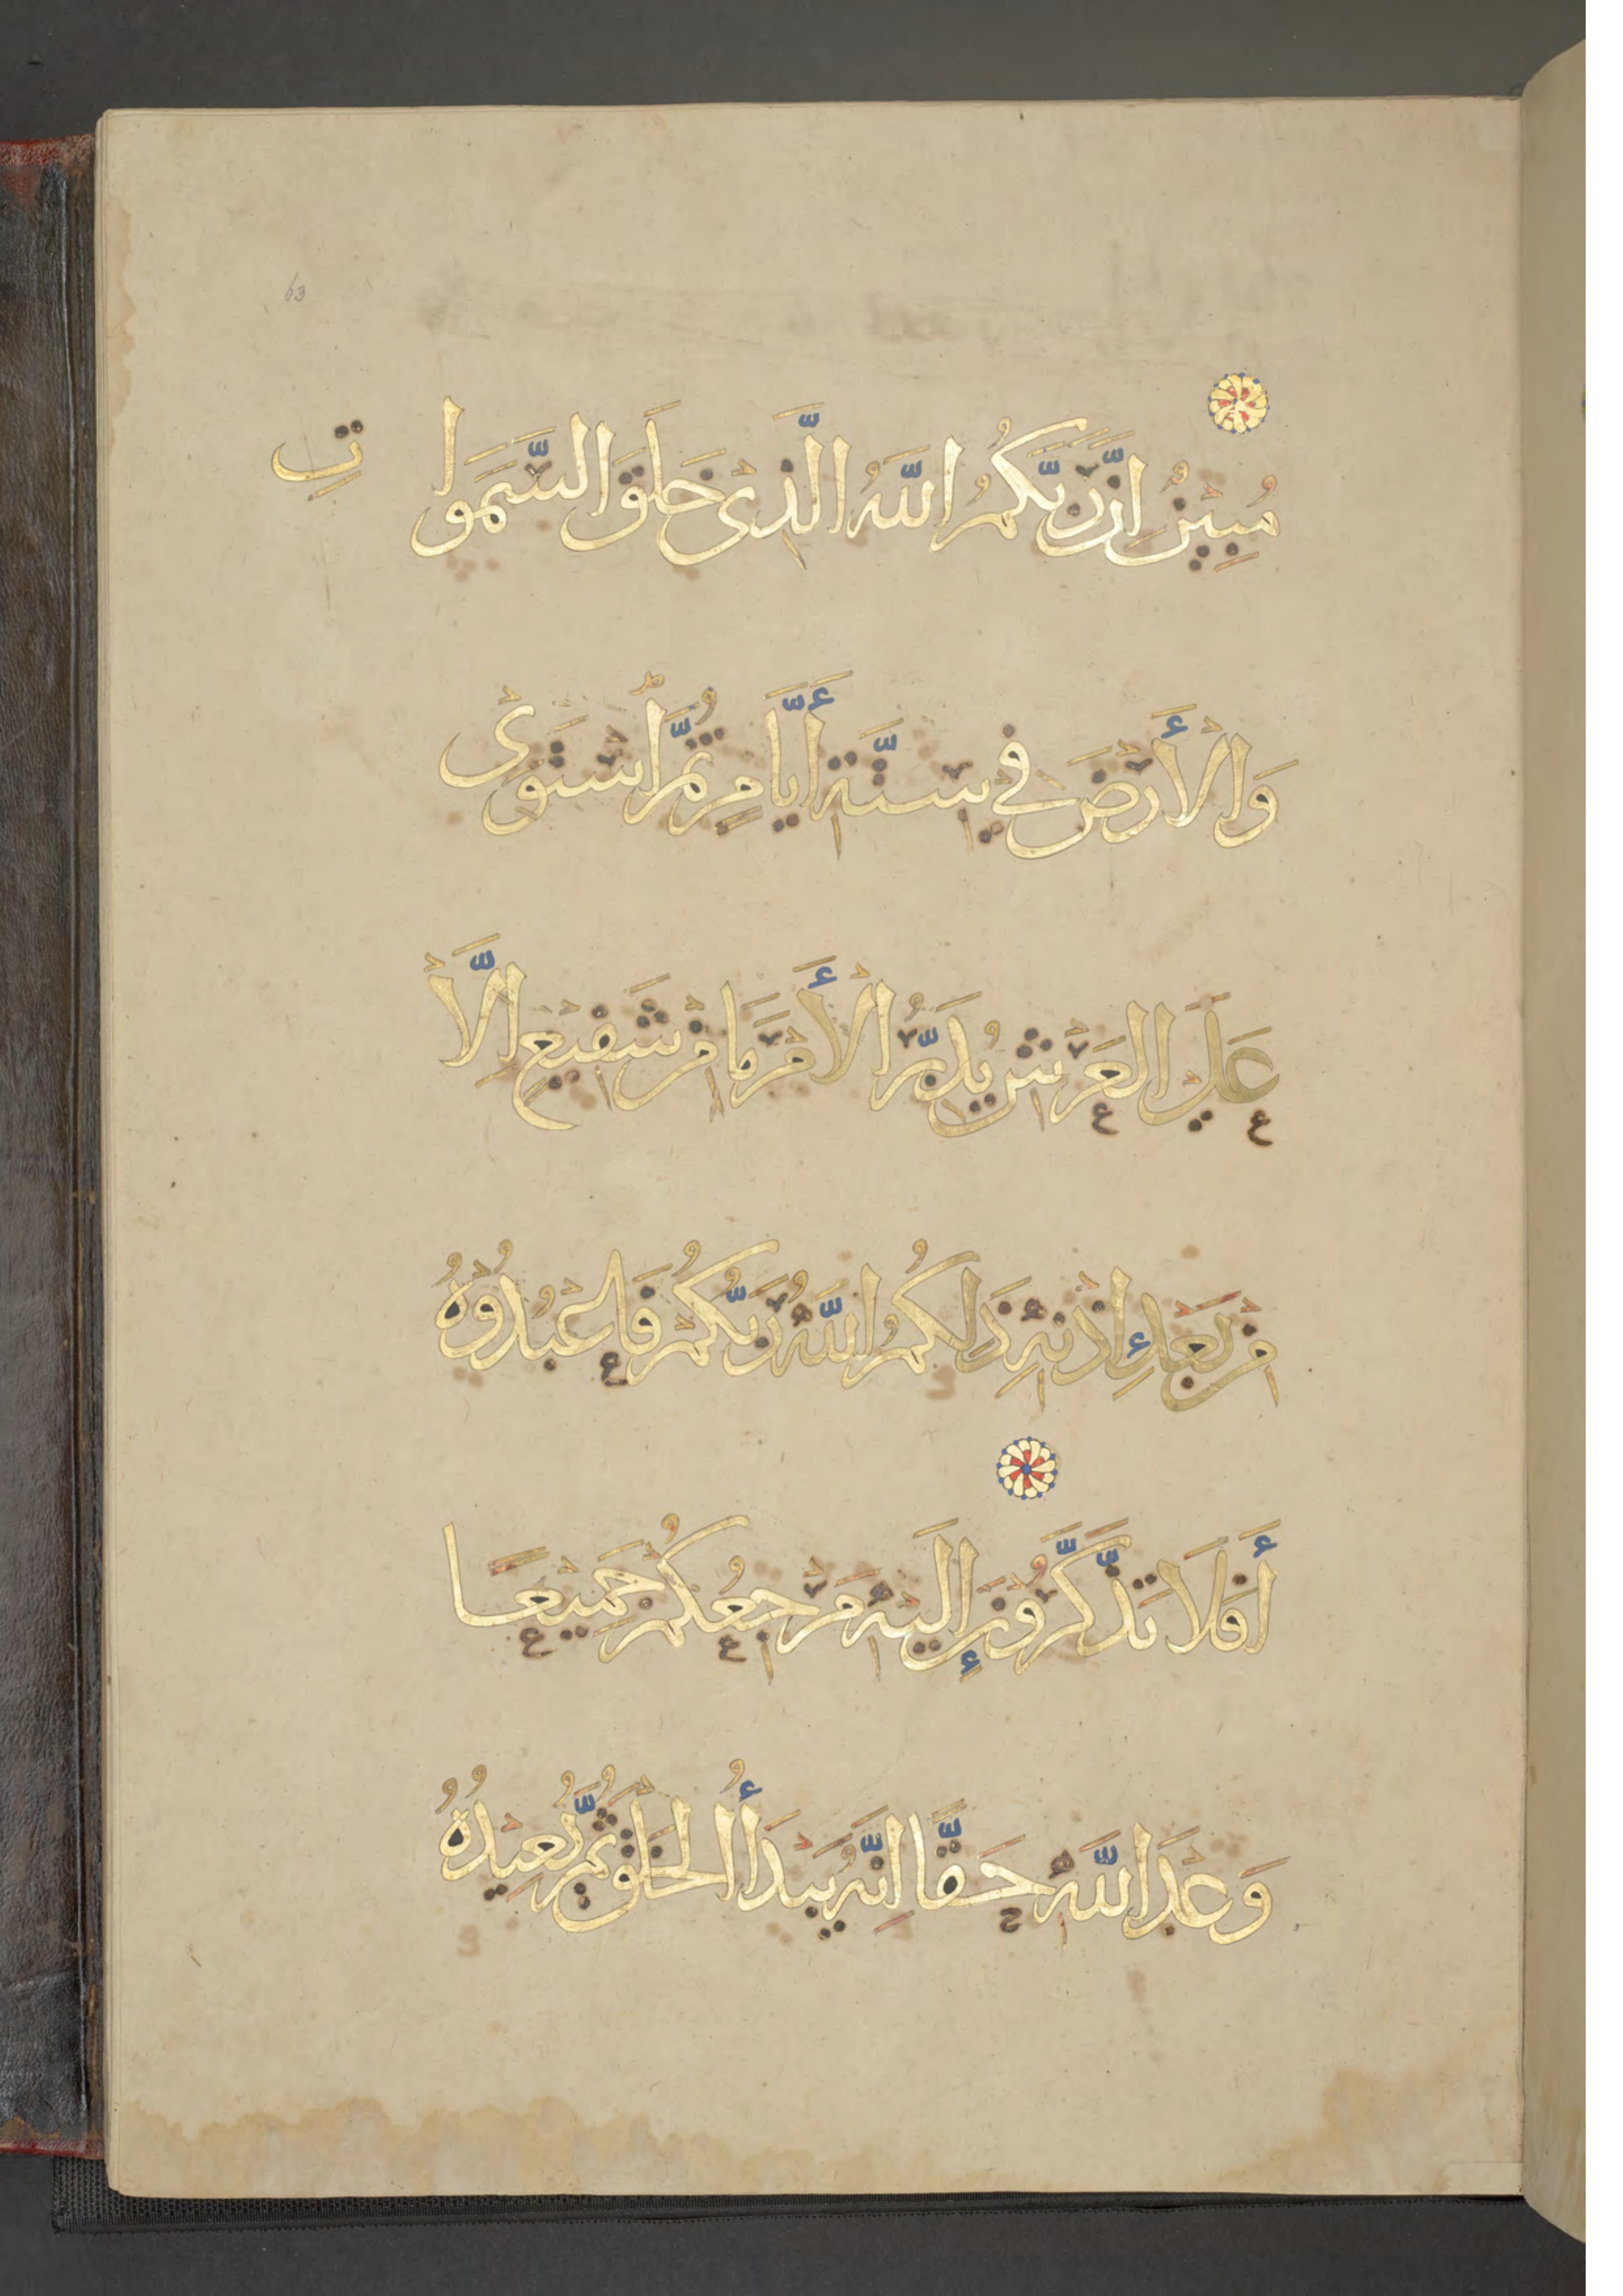 63
مُبِينٌ إِنَّ رَبَّكُمُ اللَّهُ الَّذِي خَلَقَ السَّمَوَاتِ
وَالْأَرْضَ فِي سِتَّةِ أَيَّامٍ ثُمَّ اسْتَوَى
عَلَى الْعَرْشِ يُدَبِّرُ الْأَمْرَ مَا مِنْ شَفِيعٍ إِلَّا
مِنْ بَعْدِ إِذْنِهِ ذَلِكُمُ اللَّهُ رَبُّكُمْ فَاعْبُدُوهُ
أَفَلَا تَذَّكَّرُونَ إِلَيْهِ مَرْجِعُكُمْ جَمِيعًا
وَعْدَ اللَّهِ حَقًّا إِنَّهُ يَبْدَأُ الْخَلْقَ ثُمَّ يُعِيدُهُ